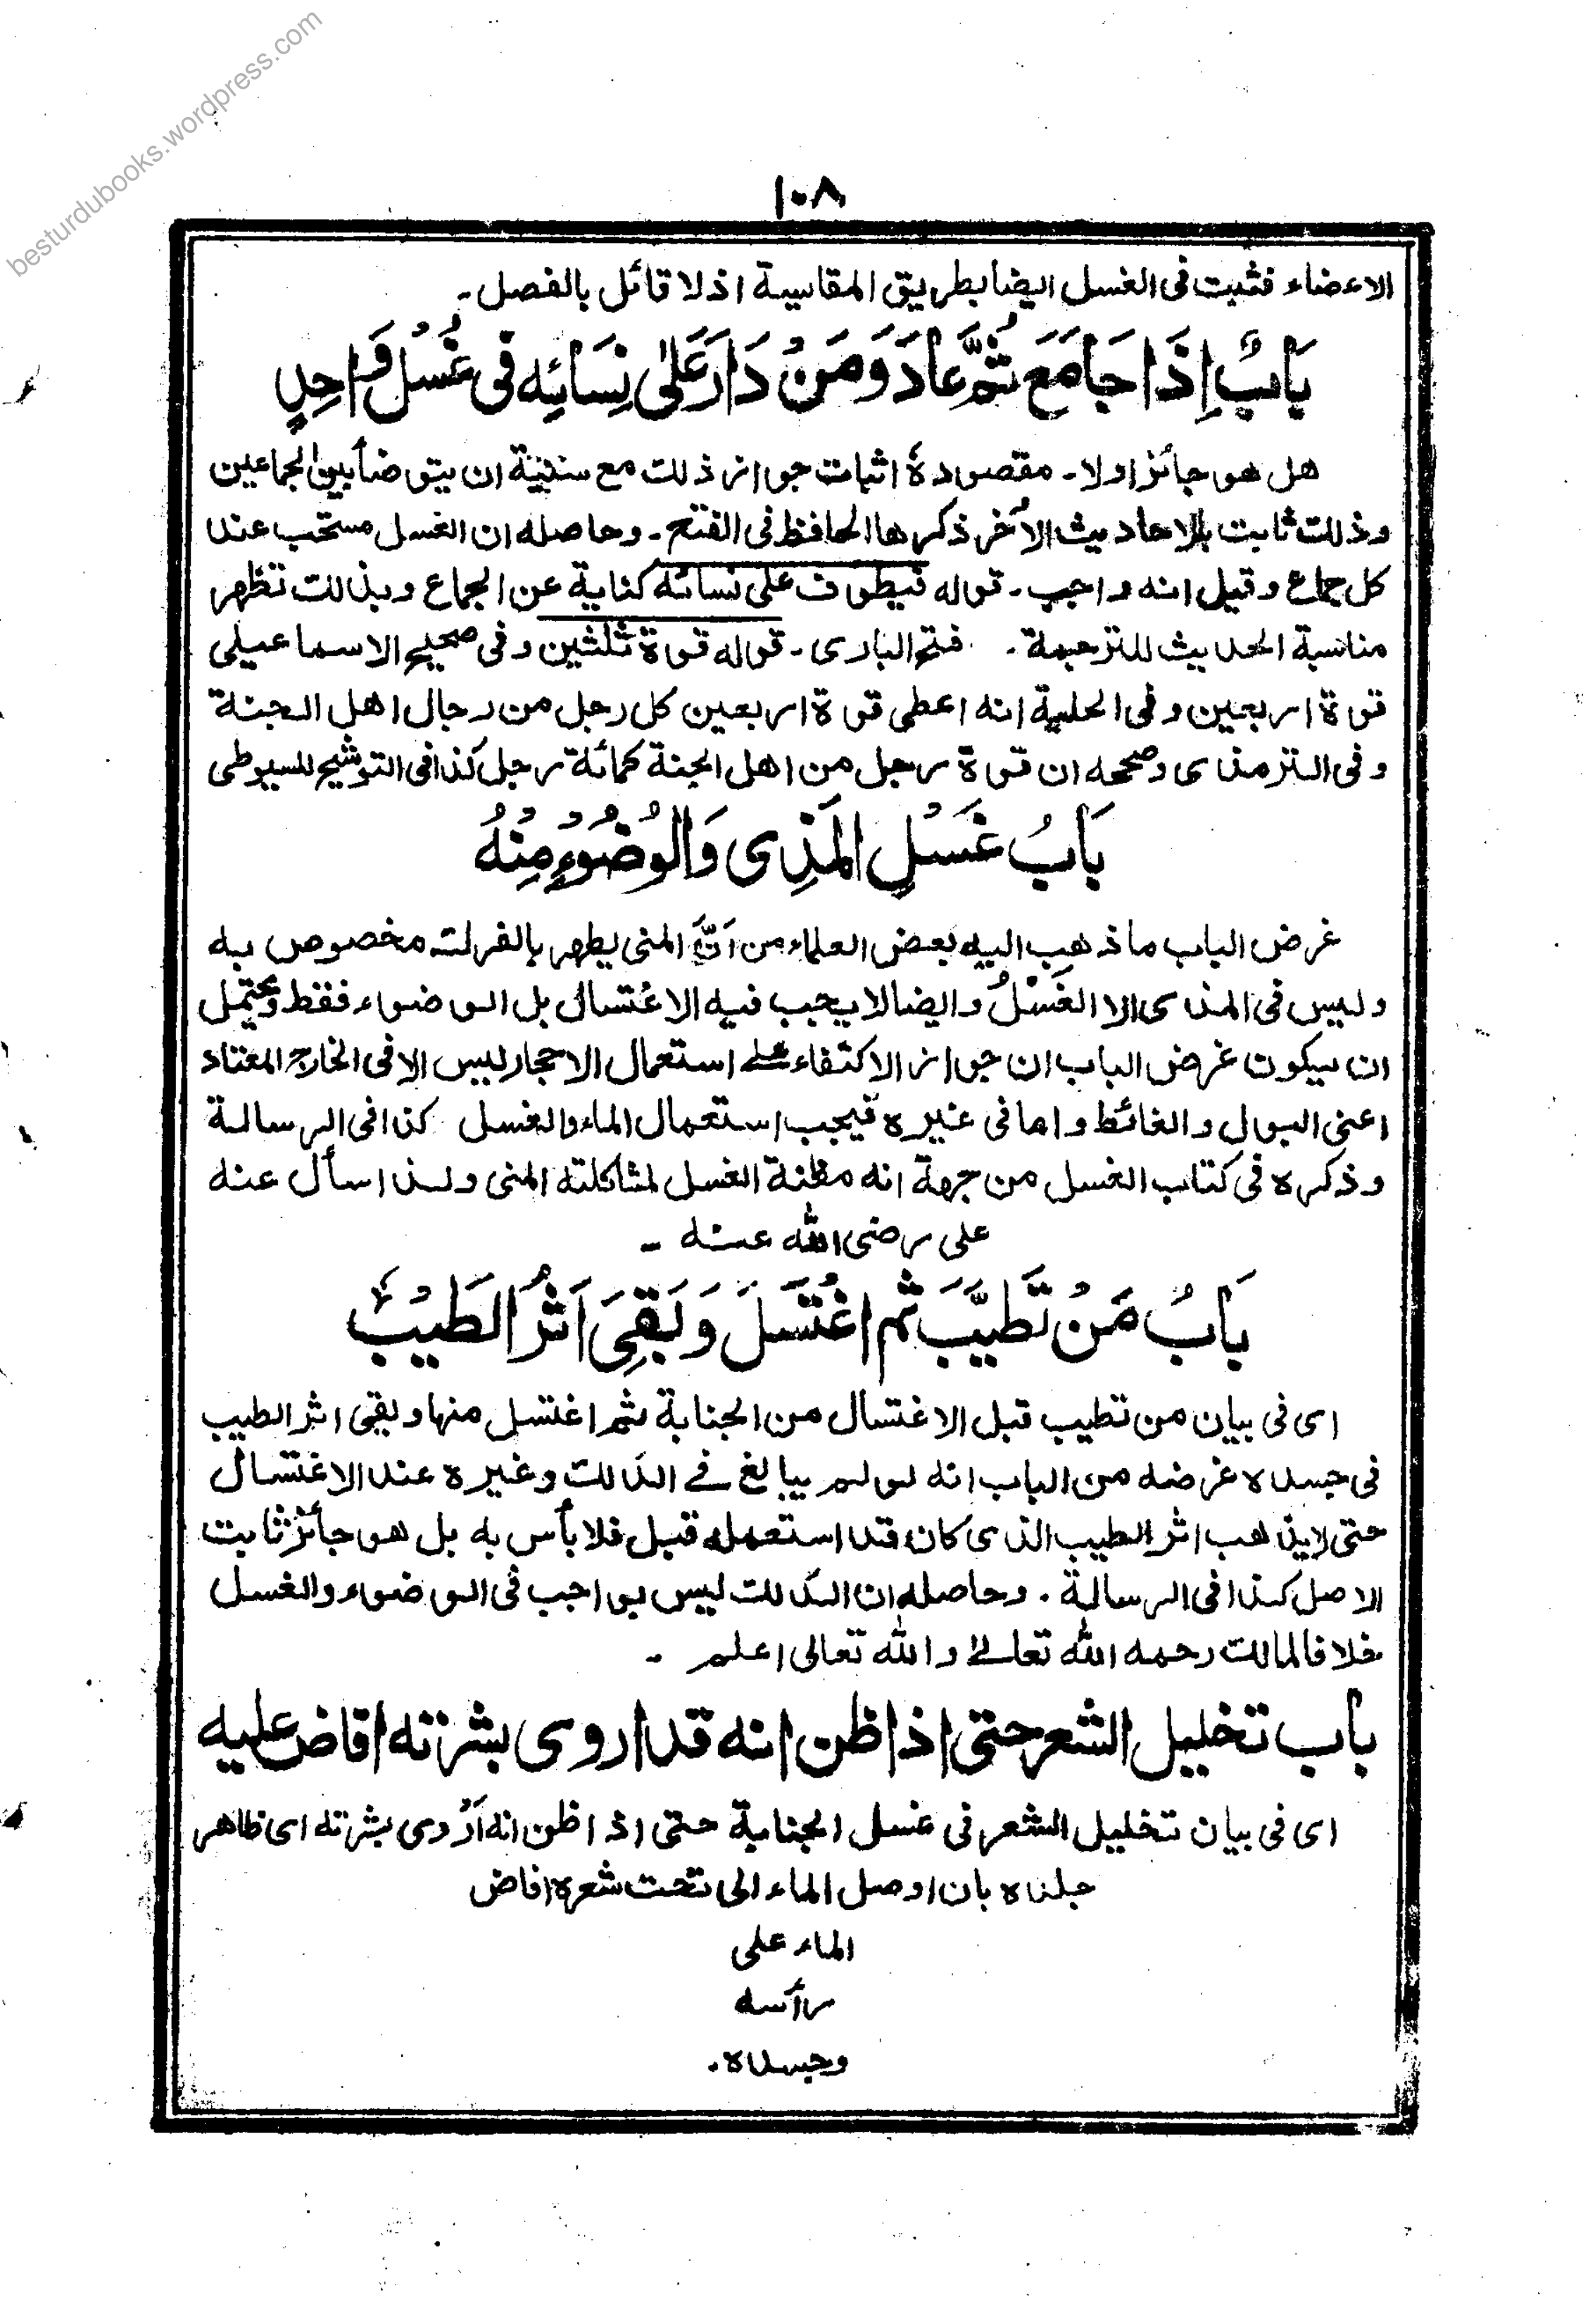 besturdubooks.wordpress.com
١٠٨
الاعضاء فثبت فى الغسل ايضا بطريق المقايسة اذ لا قائل بالفصل۔
بَابٌ اِذَا جَامَعَ ثُمَّ عَادَ وَمَنْ دَارَ عَلٰى نِسَائِهِ فى غُسْلٍ وَاحِدٍ
هل هو جائز اولا۔ مقصوده اثبات جواز ذلك مع سنية ان يتوضأ بين الجماعين
وذلك ثابت بالاحاديث الأخر ذكرها الحافظ فى الفتح۔ وحاصله ان الغسل مستحب عند
كل جماع وقيل انه واجب۔ قوله فيطوف على نسائه كناية عن الجماع وبذلك تظهر
مناسبة الحديث للترجمة۔ فتح البارى۔ قوله قوة ثلثين وفى صحيح الاسماعيلى
قوة اربعين وفى الحلية انه اعطى قوة اربعين كل رجل من رجال اهل الجنة
وفى الترمذى وصححه ان قوة رجل من اهل الجنة كمائة رجل كذا فى التوشيح للسيوطى
بَابُ غَسْلِ الْمَذِى وَالْوُضُوْءِ مِنْهُ
غرض الباب ما ذهب اليه بعض العلماء من اَنَّ المنى يطهر بالفرك مخصوص به
وليس فى المذى الا الغَسْلُ وايضا لا يجب فيه الاغتسال بل الوضوء فقط ويحتمل
ان يكون غرض الباب ان جواز الاكتفاء على استعمال الاحجار ليس الا فى الخارج المعتاد
اعنى البول والغائط واما فى غيره فيجب استعمال الماء والغسل كذا فى الرسالة
وذكره فى كتاب الغسل من جهة انه مظنة الغسل لمشاكلته المنى ولذا سأل عنه
على رضى الله عنه ۔
بَابُ مَنْ تَطَيَّبَ ثم اغْتَسَلَ وَبَقِىَ اَثَرُ الطِّيْبِ
اى فى بيان من تطيب قبل الاغتسال من الجنابة ثم اغتسل منها وبقى اثر الطيب
فى جسده غرضه من الباب انه لو لم يبالغ فے الدلك وغيره عند الاغتسال
حتى لا يذهب اثر الطيب الذى كان قد استعمله قبل فلا بأس به بل هو جائز ثابت
الاصل كذا فى الرسالة ۔ وحاصله ان الدلك ليس بواجب فى الوضوء والغسل
خلافا لمالك رحمه الله تعالےٰ والله تعالى اعلم ۔
باب تخليل الشعر حتى اذا ظن انه قد اروى بشرته افاض عليه
اى فى بيان تخليل الشعر فى غسل الجنابة حتى اذا ظن انه اَرْوى بشرته اى ظاهر
جلده بان اوصل الماء الى تحت شعره افاض
الماء على
رأسه
وجسده۔